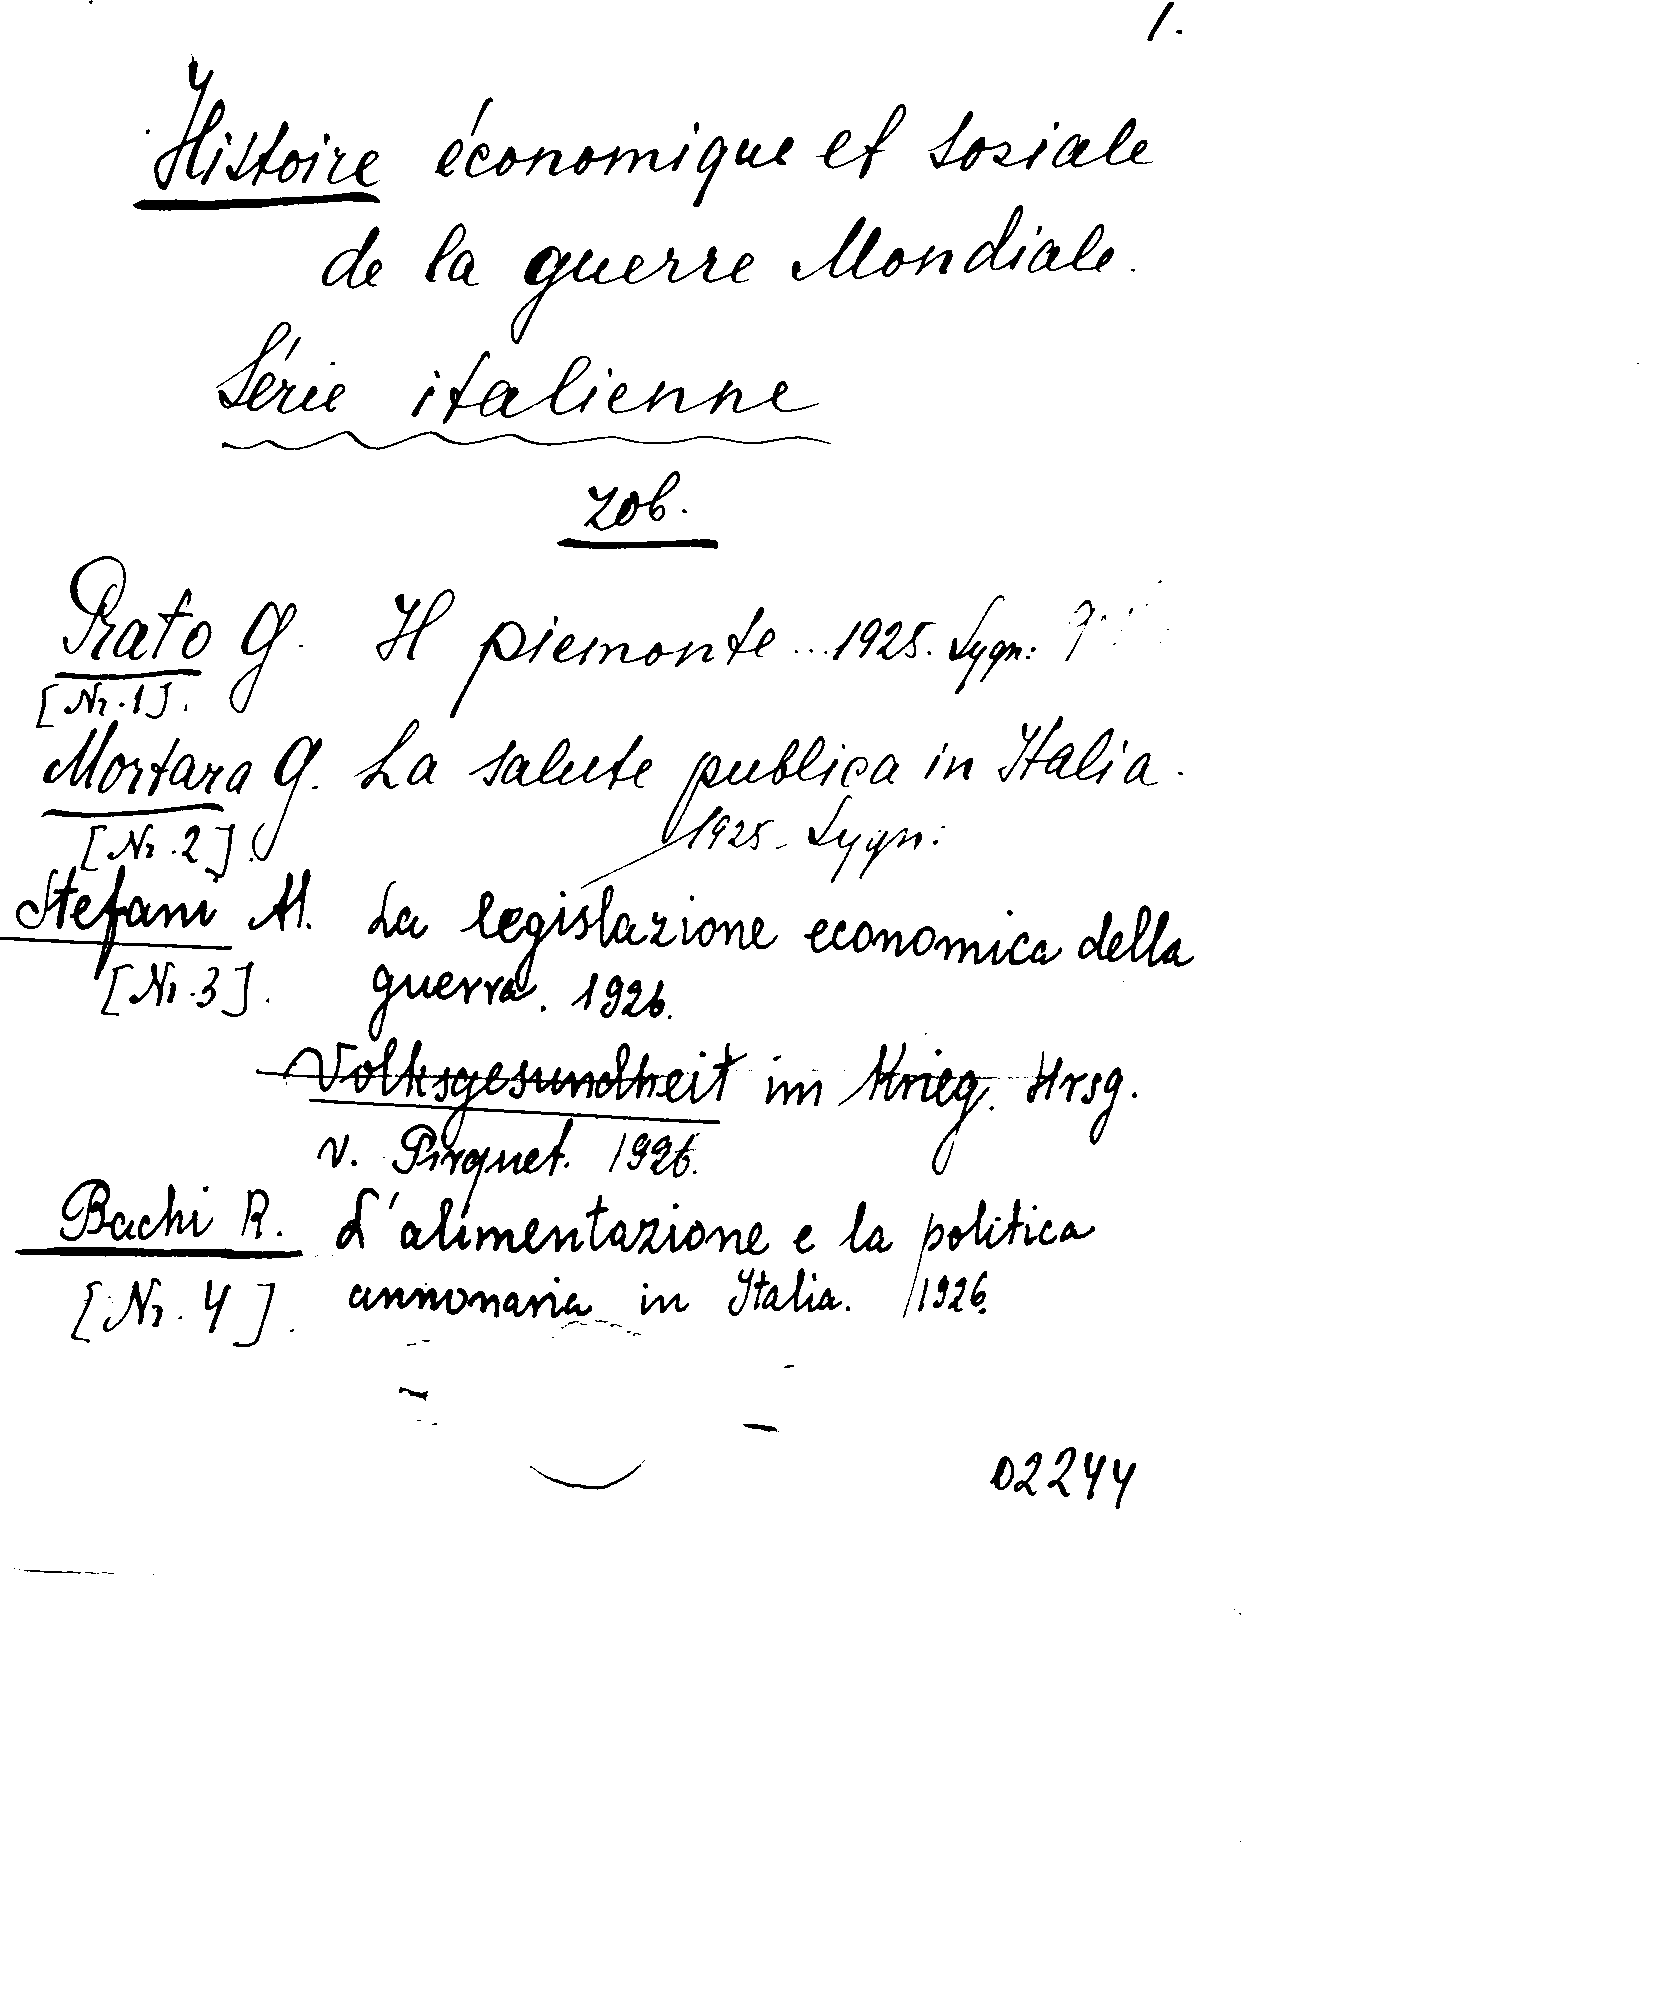 1.
Histoire économique et sosiale
de la guerre Mondiale.
Série italienne
zob.
Prato G. Il piemonte... 1925. Sygn:
[Nr. 1].
Mortara G. La salute publica in Italia.
[Nr. 2]. 1925. Sygn:
Stefani M. La legislazione economica della
[Nr. 3]. guerra. 1926.
Volksgesundheit im Krieg. Hrsg.
v. Pirquet. 1926.
Bachi R. L'alimentazione e la politica
[Nr. 4]. annonaria in Italia. 1926.
02244